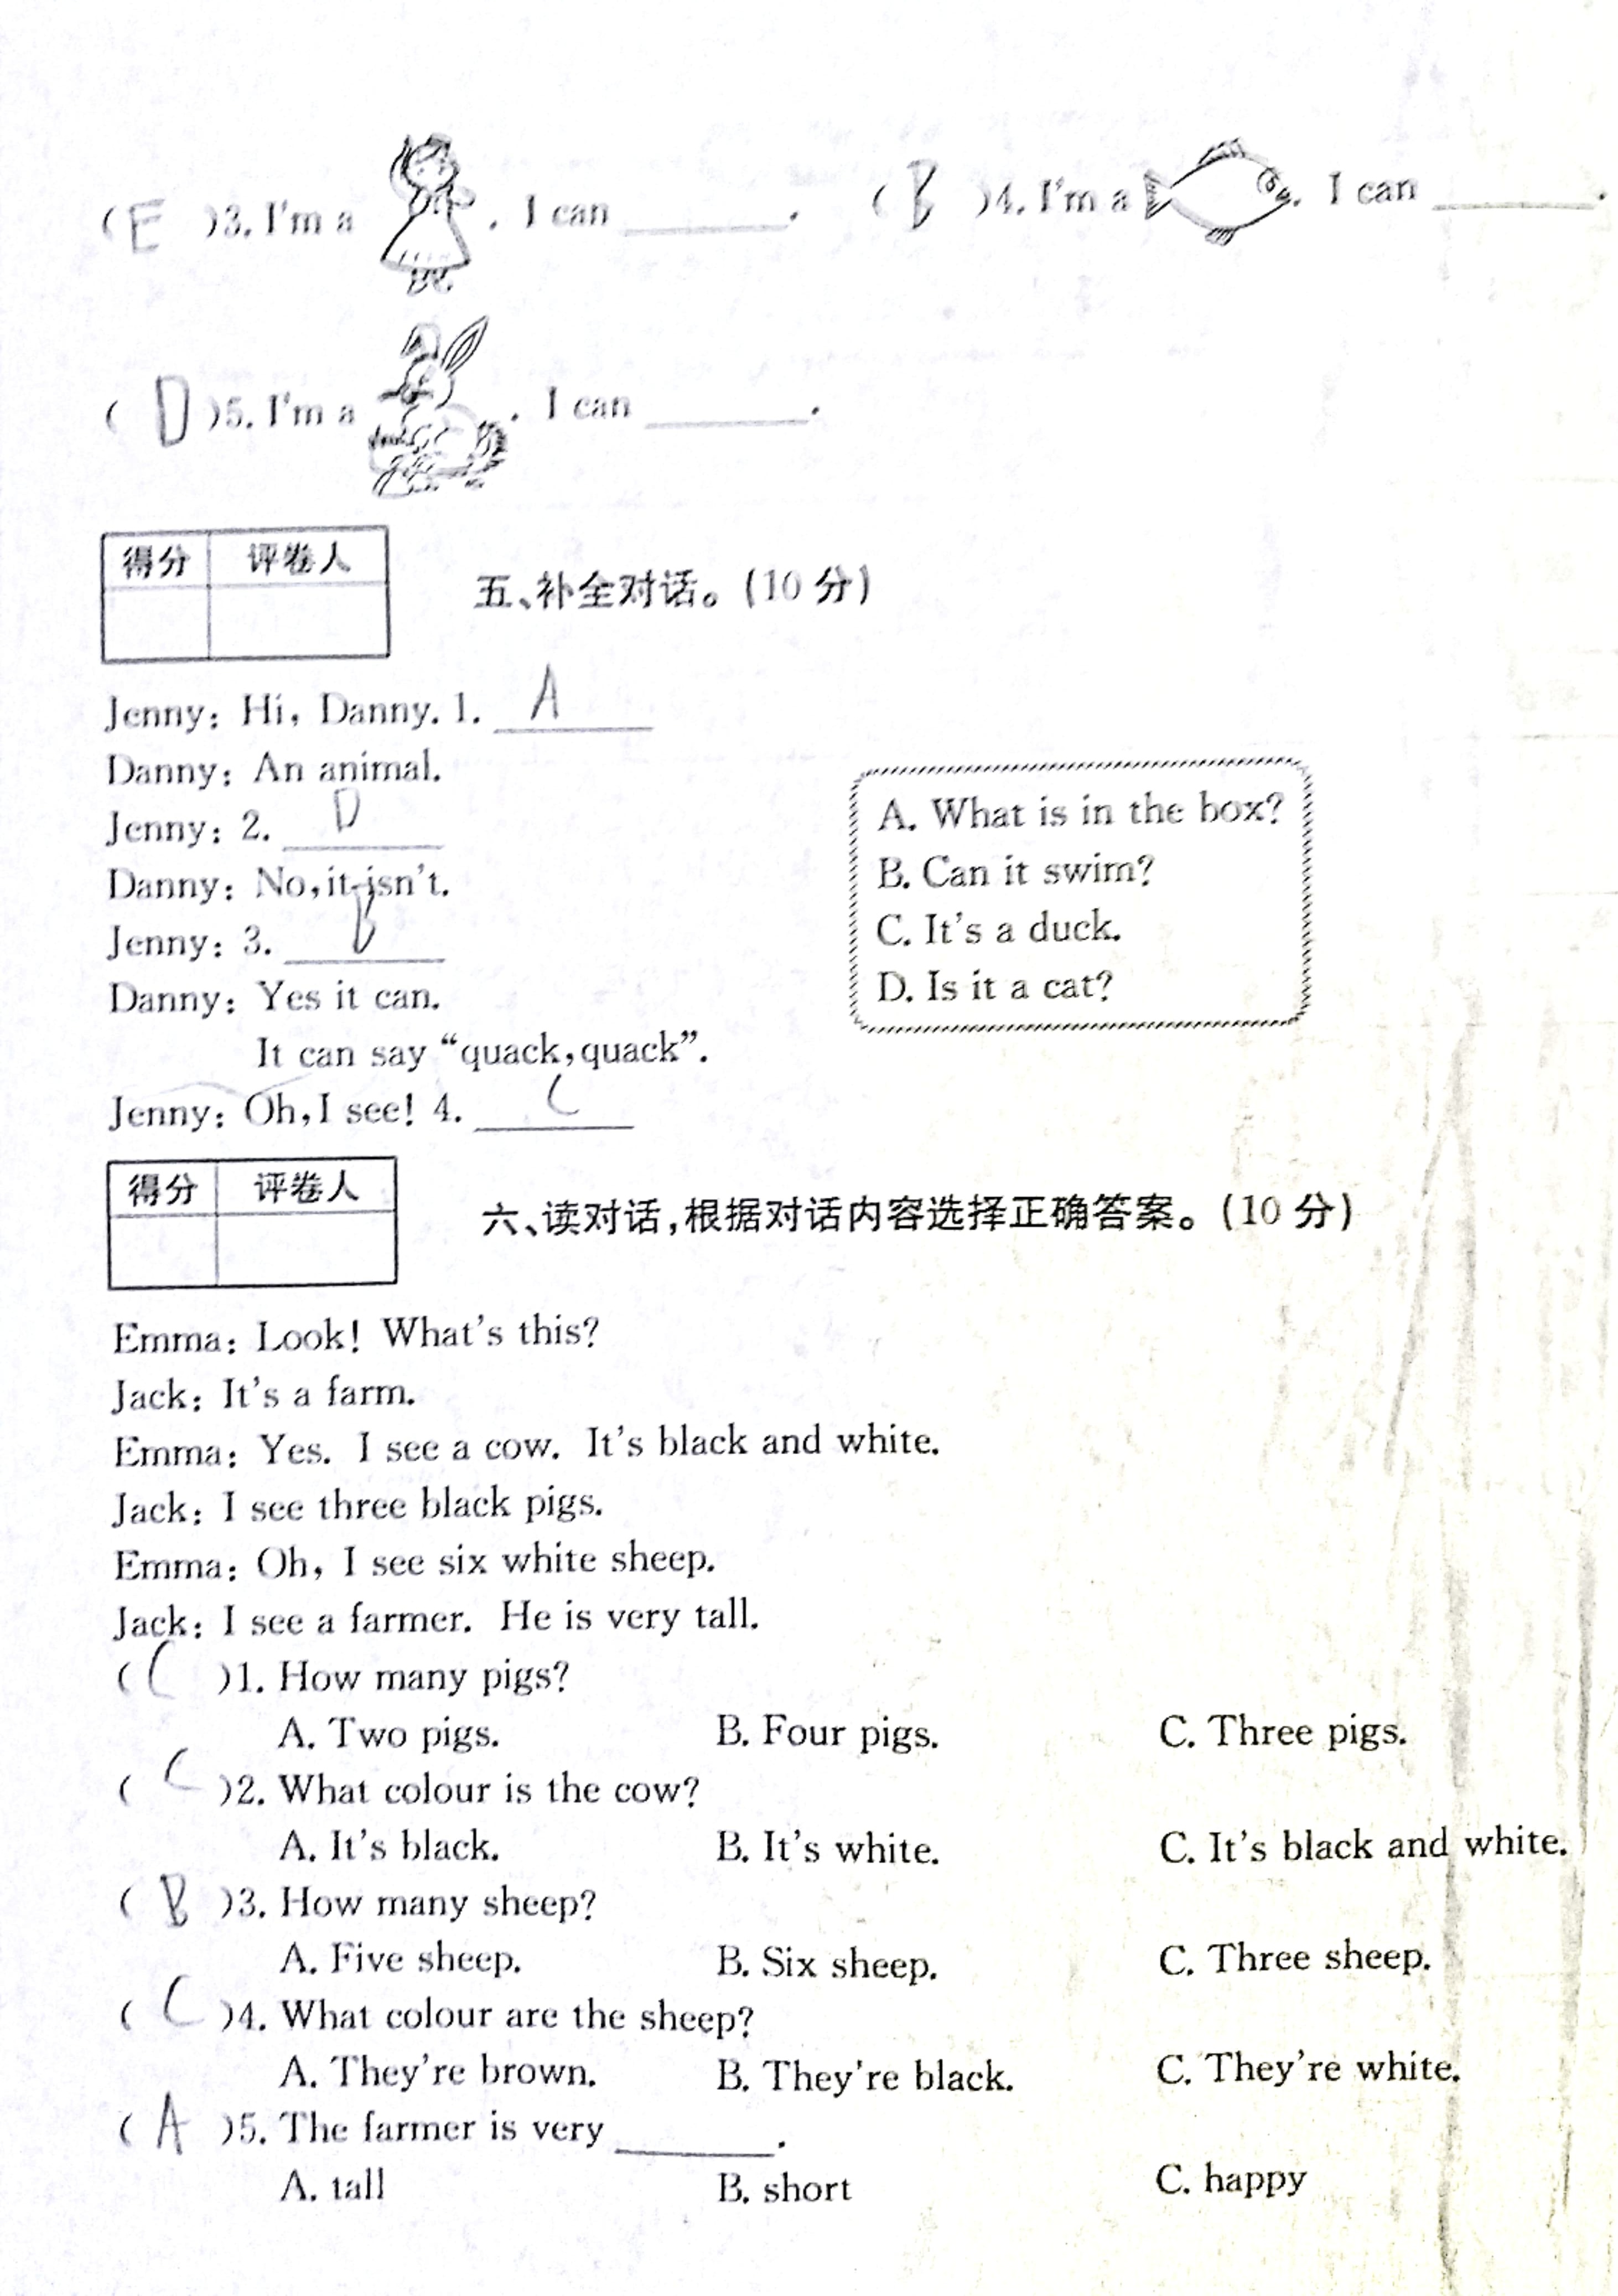 ( E )3. I'm a . I can ________. ( B )4. I'm a . I can ________.
( D )5. I'm a . I can ________.
得分 评卷人
五、补全对话。(10 分)
Jenny: Hi, Danny. 1. A
Danny: An animal.
Jenny: 2. D
Danny: No,it isn't.
Jenny: 3. B
Danny: Yes it can.
It can say “quack,quack”.
Jenny: Oh,I see! 4. C
A. What is in the box?
B. Can it swim?
C. It's a duck.
D. Is it a cat?
得分 评卷人
六、读对话,根据对话内容选择正确答案。(10 分)
Emma: Look! What's this?
Jack: It's a farm.
Emma: Yes. I see a cow. It's black and white.
Jack: I see three black pigs.
Emma: Oh, I see six white sheep.
Jack: I see a farmer. He is very tall.
( C )1. How many pigs?
A. Two pigs. B. Four pigs. C. Three pigs.
( C )2. What colour is the cow?
A. It's black. B. It's white. C. It's black and white.
( B )3. How many sheep?
A. Five sheep. B. Six sheep. C. Three sheep.
( C )4. What colour are the sheep?
A. They're brown. B. They're black. C. They're white.
( A )5. The farmer is very ________.
A. tall B. short C. happy